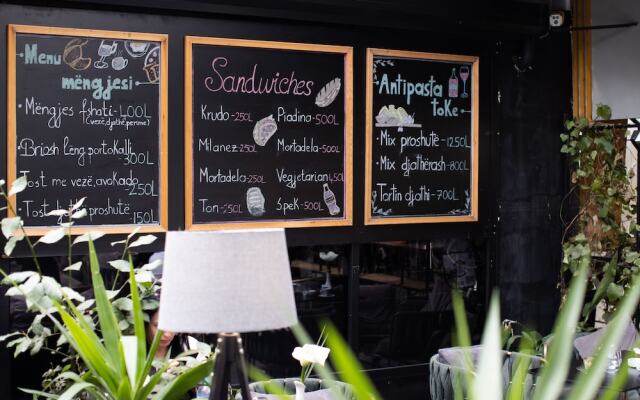 Menu
mëngjesi
Mëngjes fshati-400L
(vezë,djathë,perime)
Briosh lëng portokalli
-300L
Tost me vezë,avokado
250L
djathë&proshutë-150L
Sandwiches
Krudo-250L
Piadina-500L
Milanez-250L
Mortadela-500L
Mortadela-250L
Vegjetarian-450L
Ton-250L
Spek-500L
Antipasta
toke
Mix proshutë-1250L
Mix djathërash-800L
Tortin djathi-700L